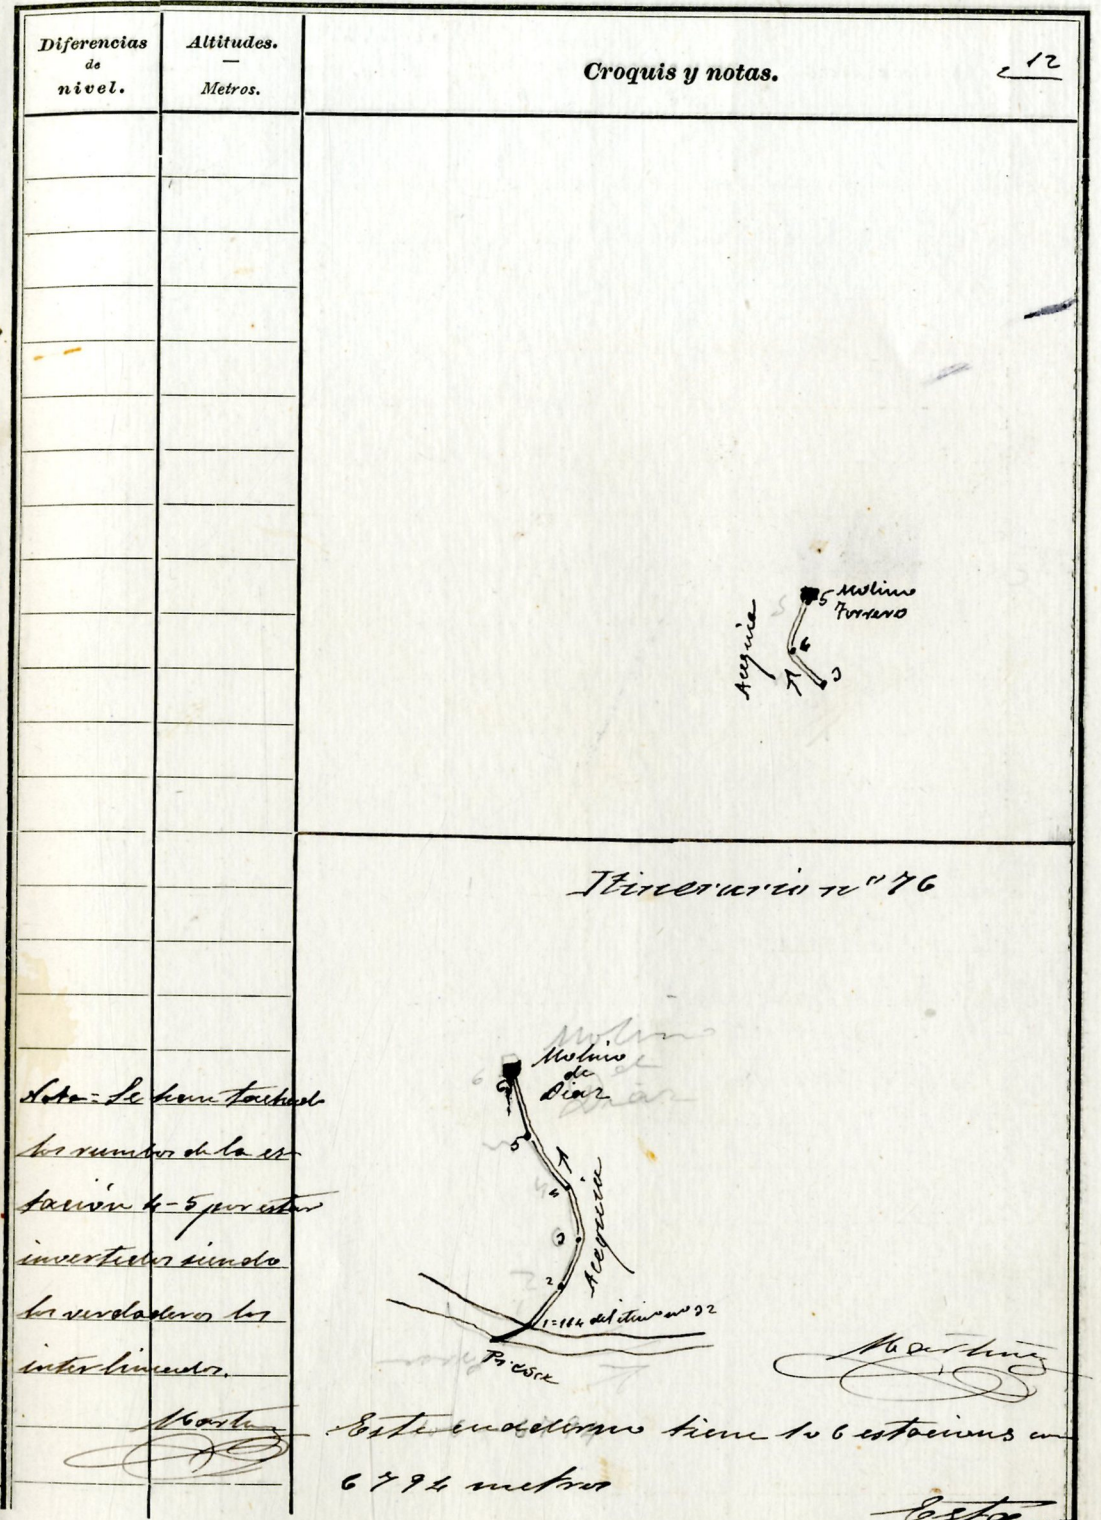 Diferencias
de
nivel.
Altitudes.
Metros.
Croquis y notas.
12
5 Molino
Torrero
Acequia
4
3
Itinerario nº 76
Molino
de
Diaz
6
5
4
Acequia
3
2
1=114 del itinº nº 32
Presa
Nota = Se han tachado
los rumbos de la es-
tación 4-5 por estar
invertidos siendo
los verdaderos los
interlineados.
Martinez
Martinez
Este cuaderno tiene 106 estaciones con
6794 metros
Está